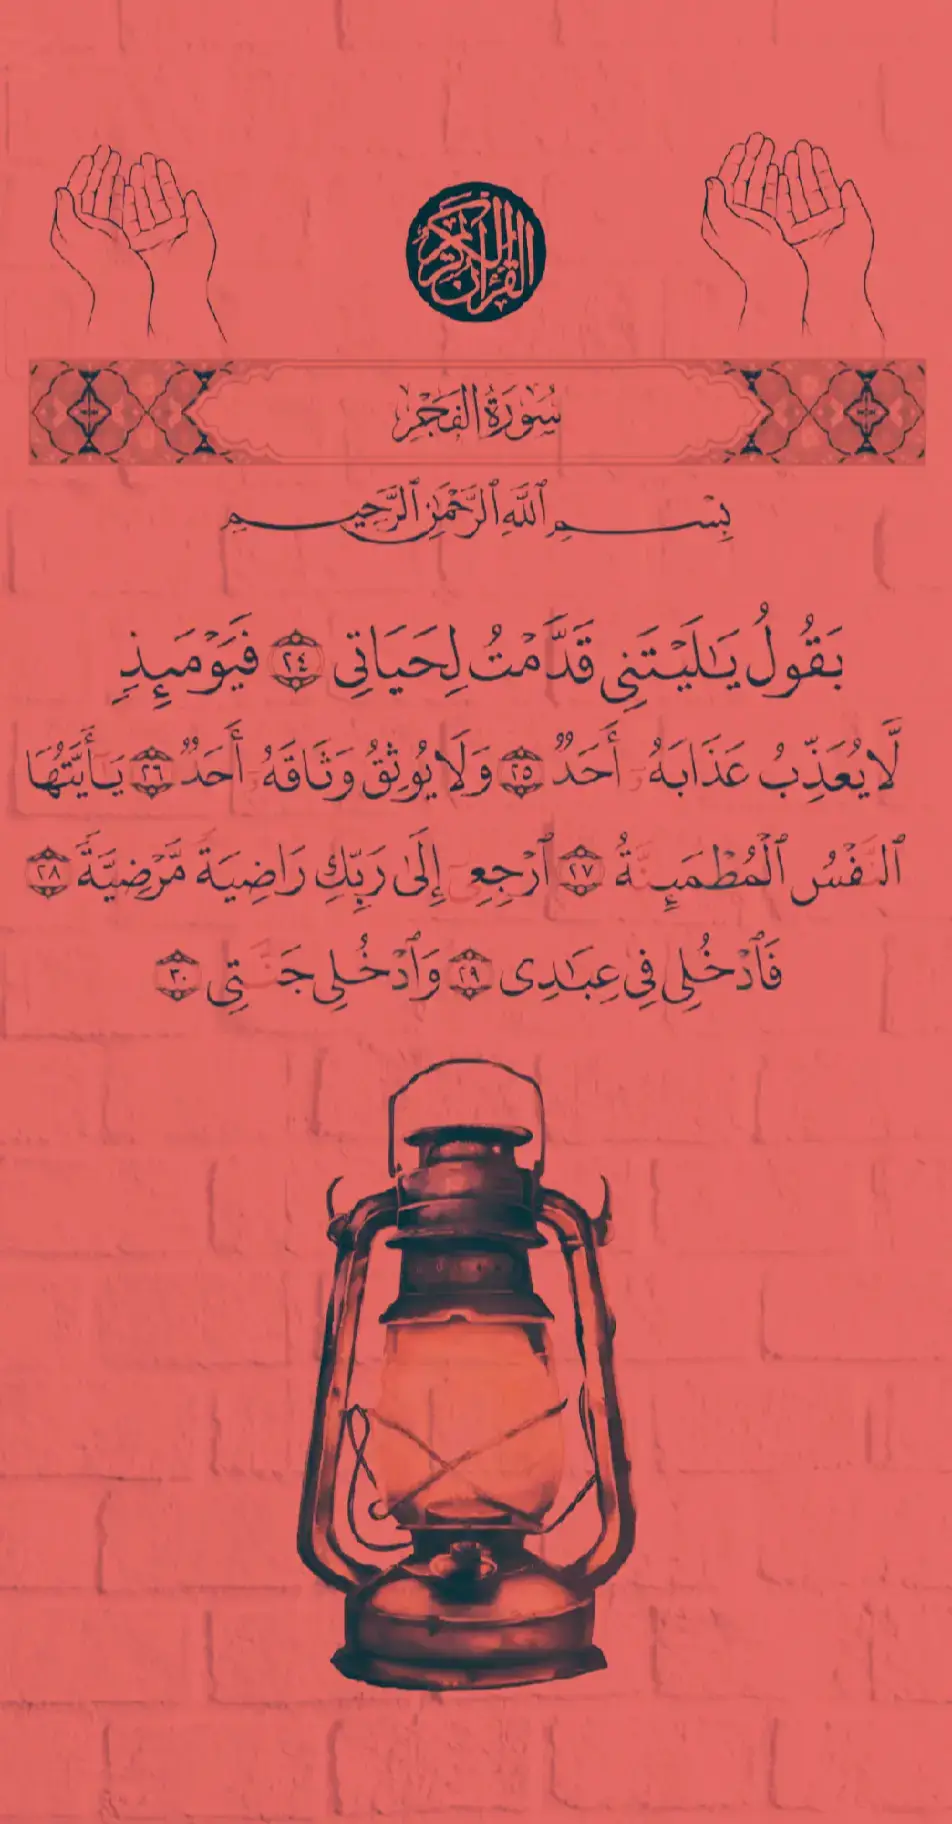 القرآن الكريم
سُورَةُ الفَجْرِ
بِسْمِ ٱللَّهِ ٱلرَّحْمَٰنِ ٱلرَّحِيمِ
يَقُولُ يَٰلَيْتَنِى قَدَّمْتُ لِحَيَاتِى ٢٤ فَيَوْمَئِذٍ
لَّا يُعَذِّبُ عَذَابَهُۥٓ أَحَدٌ ٢٥ وَلَا يُوثِقُ وَثَاقَهُۥٓ أَحَدٌ ٢٦ يَٰٓأَيَّتُهَا
ٱلنَّفْسُ ٱلْمُطْمَئِنَّةُ ٢٧ ٱرْجِعِىٓ إِلَىٰ رَبِّكِ رَاضِيَةً مَّرْضِيَّةً ٢٨
فَٱدْخُلِى فِى عِبَٰدِى ٢٩ وَٱدْخُلِى جَنَّتِى ٣٠